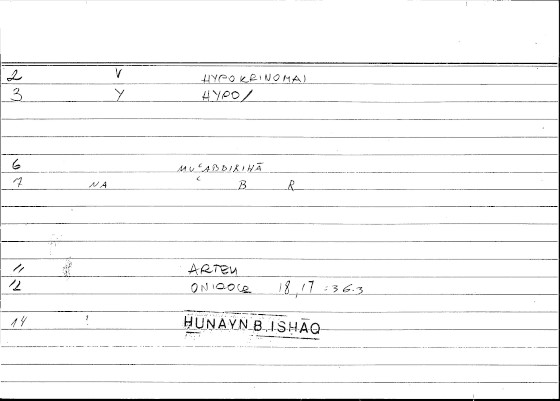 2 V HYPOKRINOMAI
3 Y HYPO/
6 MUʿABBIRIHĀ
7 NA ʿ B R
11 ARTEM
12 ONIROCR 18,17 :36.3
14 ! HUNAYN B. ISHĀQ